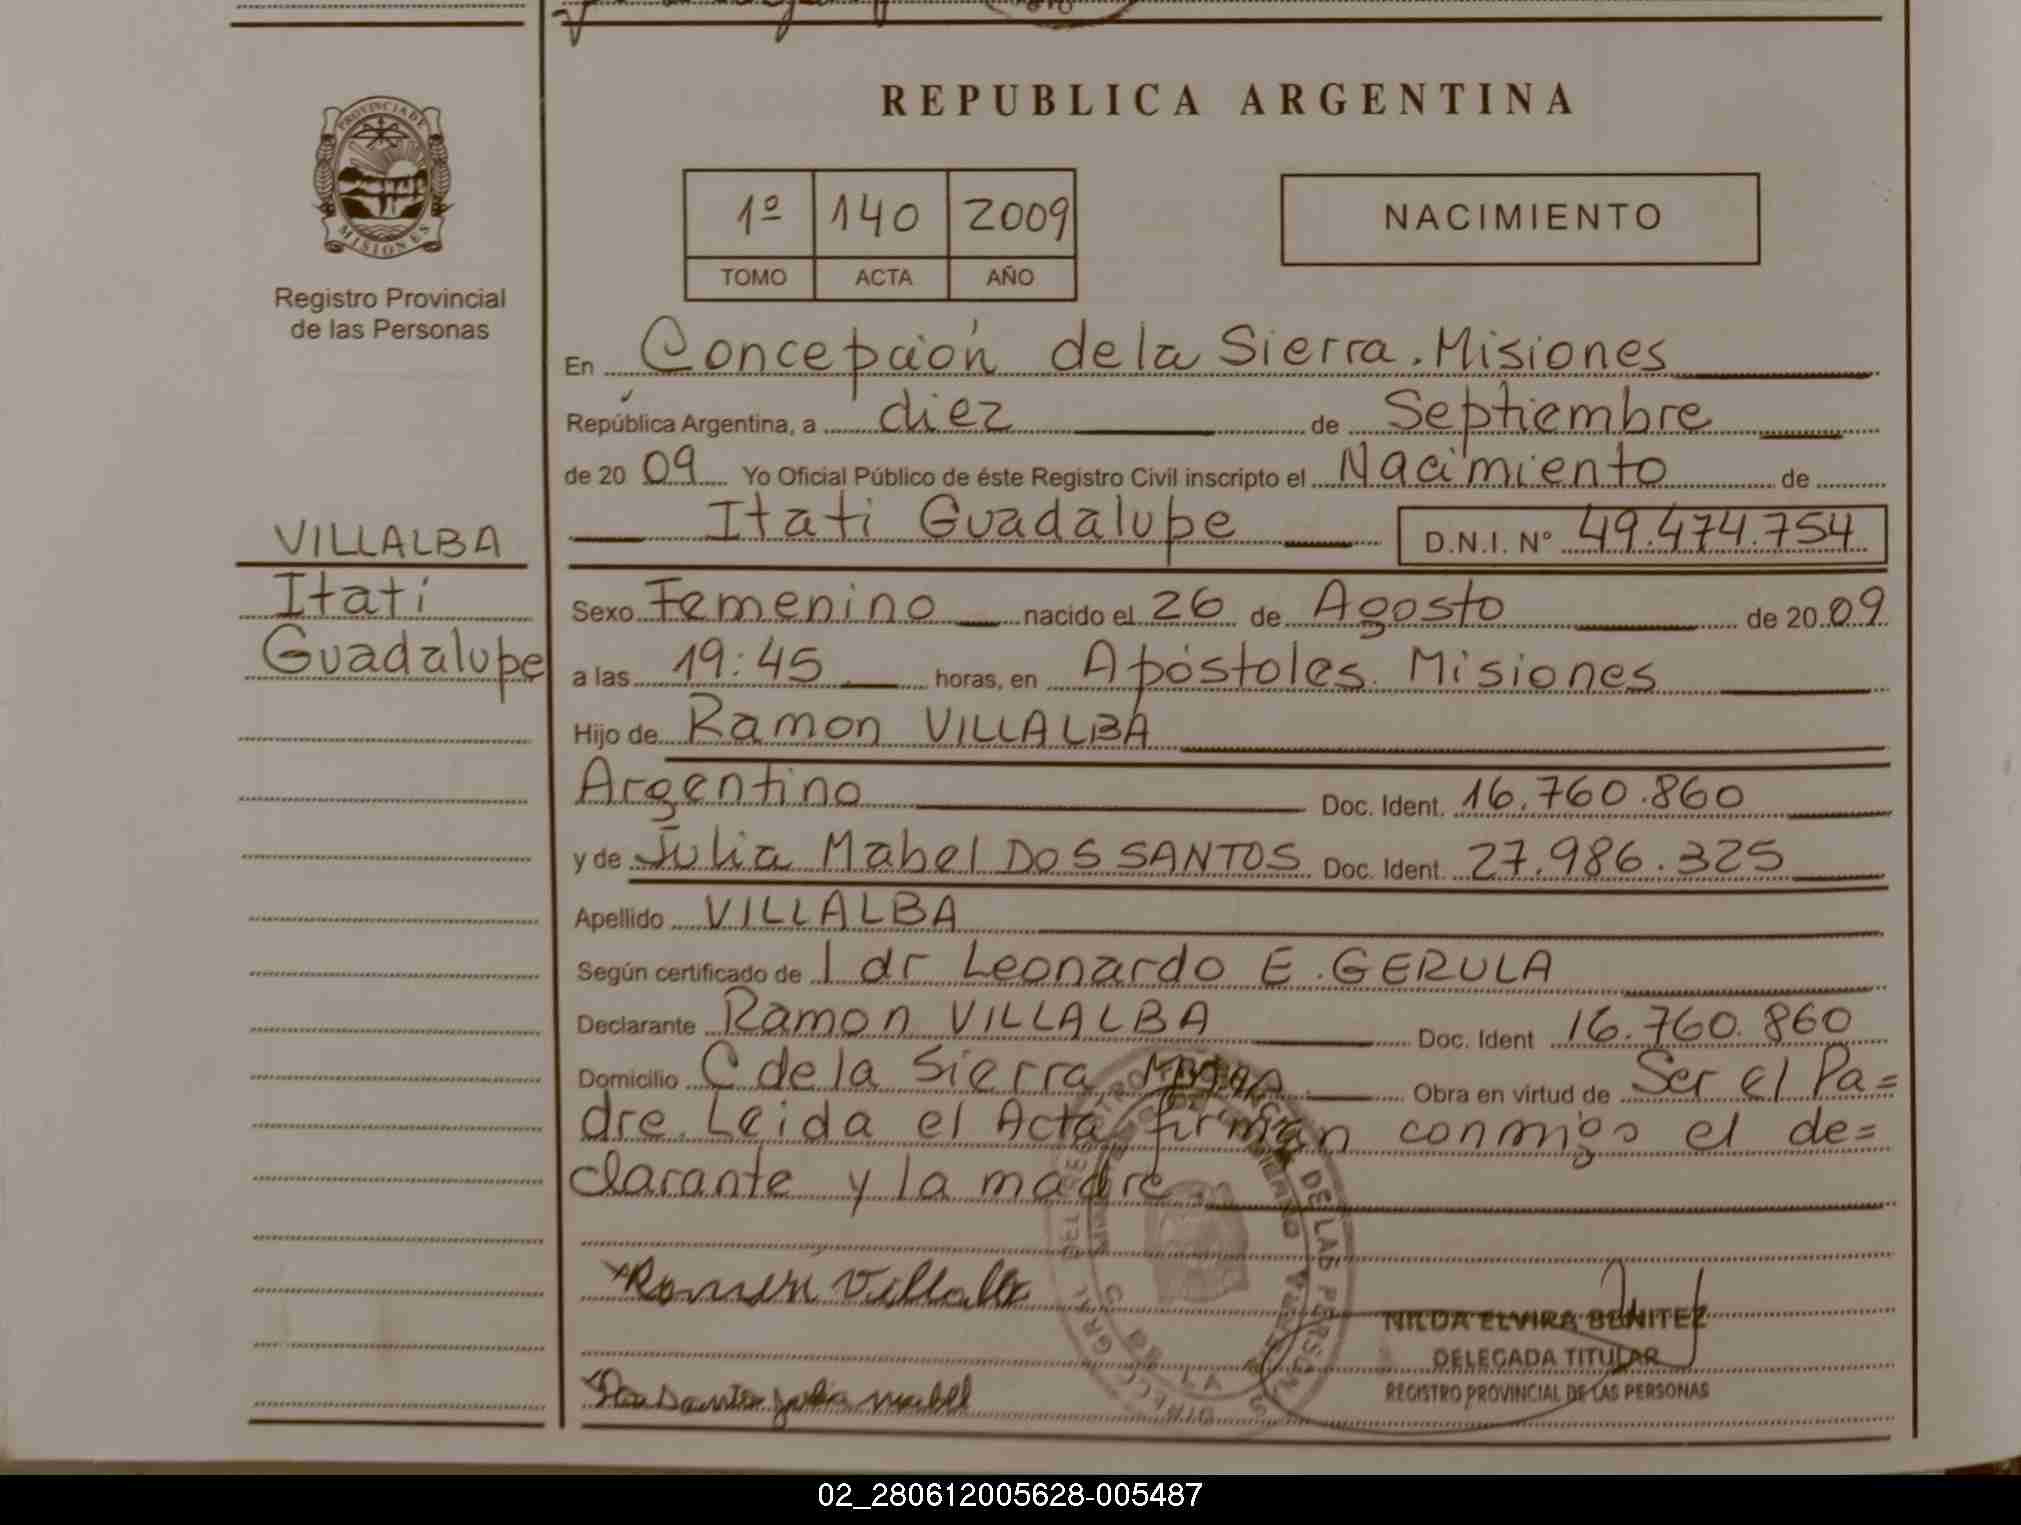 REPUBLICA ARGENTINA
PROVINCIA DE MISIONES
Registro Provincial
de las Personas
1º 140 2009
TOMO ACTA AÑO
NACIMIENTO
En Concepción de la Sierra. Misiones
República Argentina, a diez de Septiembre
de 20 09 Yo Oficial Público de éste Registro Civil inscripto el Nacimiento de
Itati Guadalupe D.N.I. Nº 49.474.754
VILLALBA
Itatí
Guadalupe
Sexo Femenino nacido el 26 de Agosto de 20 09
a las 19:45 horas, en Apóstoles. Misiones
Hijo de Ramon VILLALBA
Argentino Doc. Ident. 16.760.860
y de Julia Mabel DOS SANTOS Doc. Ident. 27.986.325
Apellido VILLALBA
Según certificado de l dr Leonardo E. GERULA
Declarante Ramon VILLALBA Doc. Ident 16.760.860
Domicilio C de la Sierra Obra en virtud de Ser el Pa=
dre. Leida el Acta, firman conmigo el de=
clarante y la madre.
Ramón Villalba
NILDA ELVIRA BENITEZ
DELEGADA TITULAR
REGISTRO PROVINCIAL DE LAS PERSONAS
Dos Santos Julia Mabel
02_280612005628-005487